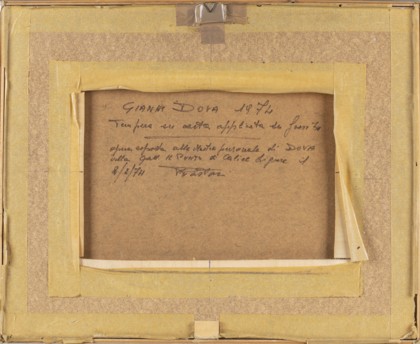 GIANNI DOVA 1974
Tempera su carta applicata su
opera esposta alla Mostra personale di DOVA
alla Gall. Il Punto di Calice Ligure il